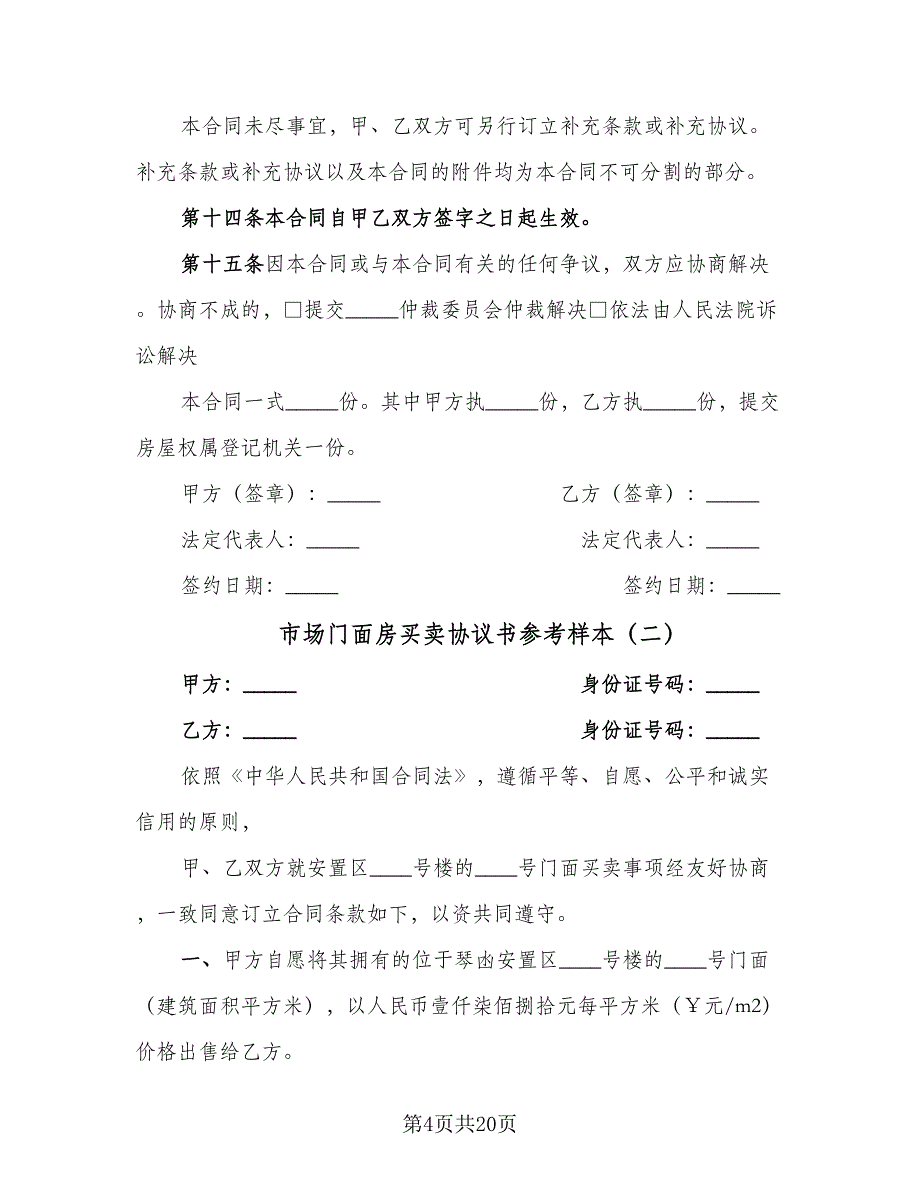 本合同未尽事宜，甲、乙双方可另行订立补充条款或补充协议。
补充条款或补充协议以及本合同的附件均为本合同不可分割的部分。
第十四条本合同自甲乙双方签字之日起生效。
第十五条因本合同或与本合同有关的任何争议，双方应协商解决
。协商不成的，□提交_____仲裁委员会仲裁解决□依法由人民法院诉
讼解决
本合同一式_____份。其中甲方执_____份，乙方执_____份，提交
房屋权属登记机关一份。
甲方（签章）：_____ 乙方（签章）：_____
法定代表人：_____ 法定代表人：_____
签约日期：_____ 签约日期：_____
市场门面房买卖协议书参考样本（二）
甲方：_____ 身份证号码：_____
乙方：_____ 身份证号码：_____
依照《中华人民共和国合同法》，遵循平等、自愿、公平和诚实
信用的原则，
甲、乙双方就安置区____号楼的____号门面买卖事项经友好协商
，一致同意订立合同条款如下，以资共同遵守。
一、甲方自愿将其拥有的位于琴凼安置区____号楼的____号门面
（建筑面积平方米），以人民币壹仟柒佰捌拾元每平方米（￥元/m2）
价格出售给乙方。
第4页共20页